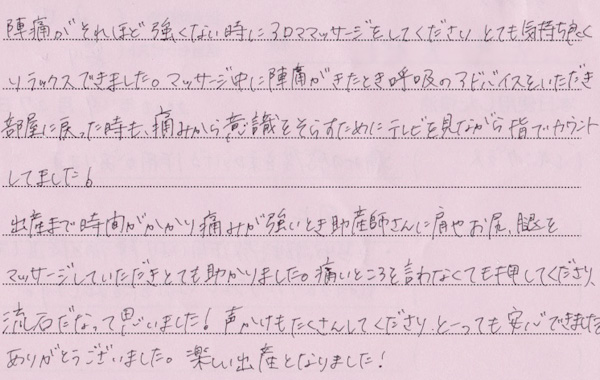 陣痛がそれほど強くない時にアロママッサージをしてくださり、とても気持ち良く
リラックスできました。マッサージ中に陣痛がきたとき呼吸のアドバイスをいただき
部屋に戻った時も、痛みから意識をそらすためにテレビを見ながら指でカウント
してました。
出産まで時間がかかり痛みが強いとき助産師さんに肩やお尻、腿を
マッサージしていただきとても助かりました。痛いところを言わなくても押してくださり、
流石だなって思いました！声かけもたくさんしてくださり、とーっても安心できました
ありがとうございました。楽しい出産となりました！